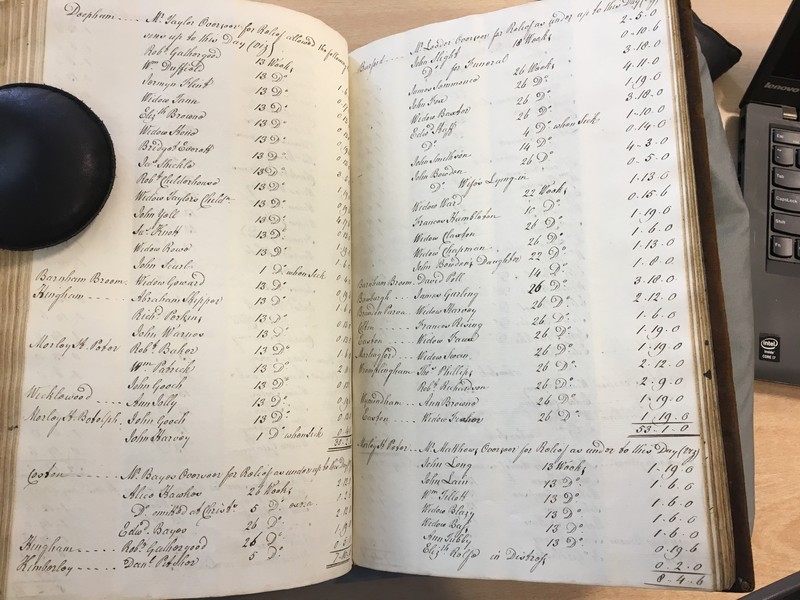 Deopham ..... Mr. Taylor Overseer for Relief allowed the following
up to this Day (viz)
Robt. Gathergood 13 Weeks
Wm Duffield 13 Do.
Jermyn Flint 13 Do.
Widow Tann 13 Do.
Elizth Browne 13 Do.
Widow Howe 13 Do.
Bridget Everett 13 Do.
13 Do.
Robt. Childerhouse 13 Do.
Widow Taylor's Childn. 13 Do.
John Yall 13 Do.
Knott 13 Do.
Widow Rowe 13 Do.
John Searl 13 Do.
Barnham Broom. Widow Goward 1 Do. when Sick
Hingham ..... Abraham Shepper 13 Do.
Richd. Perkins 13 Do.
John Warnes 13 Do.
Morley St. Peter Robt. Baker 13 Do.
Wm Patrick 13 Do.
John Gooch 13 Do.
Wicklewood ..... Ann Jolly 13 Do.
Morley St. Botolph. John Gooch 13 Do.
John Harvey 1 Do. when Sick
Coston ..... Mr. Bayes Overseer for Relief as under up to this Day
Alice Hawkes 26 Weeks
Do. omitted at 5 Do.
Edwd. Bayes 26 Do.
Hingham ..... Robt. Gathergood 26 Do.
Kimberley ..... Danl. 5 Do.
Barford .... Mr. Lodder Overseer for Relief as under up to this Day (viz)
John Slight 18 Weeks 2-5-0
Do. for Funeral 0-10-6
James Lammonce 26 Weeks 3-18-0
John Fox 26 Do. 4-11-0
Widow Baxter 26 Do. 1-19-6
Edwd. Huff 26 Do. 3-18-0
Do. 4 Do. when Sick 1-10-0
John Smithson 14 Do. 0-14-0
John Bowden 26 Do. 4-3-0
Do. Wife's Lying in 0-5-0
Widow Ward 22 Weeks 1-13-6
Frances Hambleton 0-15-6
Widow Clawson 26 Do. 1-19-6
Widow Chapman 26 Do. 1-6-0
John Bowden's Daughter 22 Do. 1-13-0
Barnham Broom. David Poll 14 Do. 1-8-0
Bowburgh ... James Gurling 26 Do. 3-18-0
Brandn. Parva. Widow Harvey 26 Do. 2-12-0
Colton ..... Frances Rising 26 Do. 1-6-0
Easton ..... Widow 26 Do. 1-19-0
Marlingford ... Widow 26 Do. 1-19-0
Wramplingham ... Thos. Phillips 26 Do. 2-12-0
Robt. Richardson 26 Do. 2-9-0
Wymondham ... Ann Browne 26 Do. 1-19-0
Easton ...... Widow Frasher 26 Do. 1-19-0
53-1-0
Morley St. Peter. Mr. Matthews Overseer for Relief as under to this Day (viz)
John Long 13 Weeks 1-19-0
John Lain 13 Do. 1-6-6
Wm. Tillett 13 Do. 1-6-0
Widow Blazy 13 Do. 1-6-0
Widow Bap 13 Do. 1-6-0
Ann Tubby 13 Do. 0-19-6
Elizth Rolfe in Distress 0-2-0
8-4-6
lenovo
Esc
Tab
CapsLock
Shift
Fn
intel
inside
CORE i7